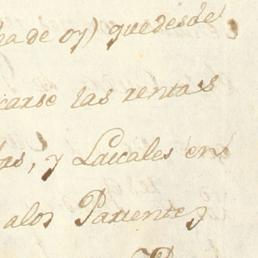 ea de oy) que desde
carse las rentas
as, y Laicales en
a los Parientes